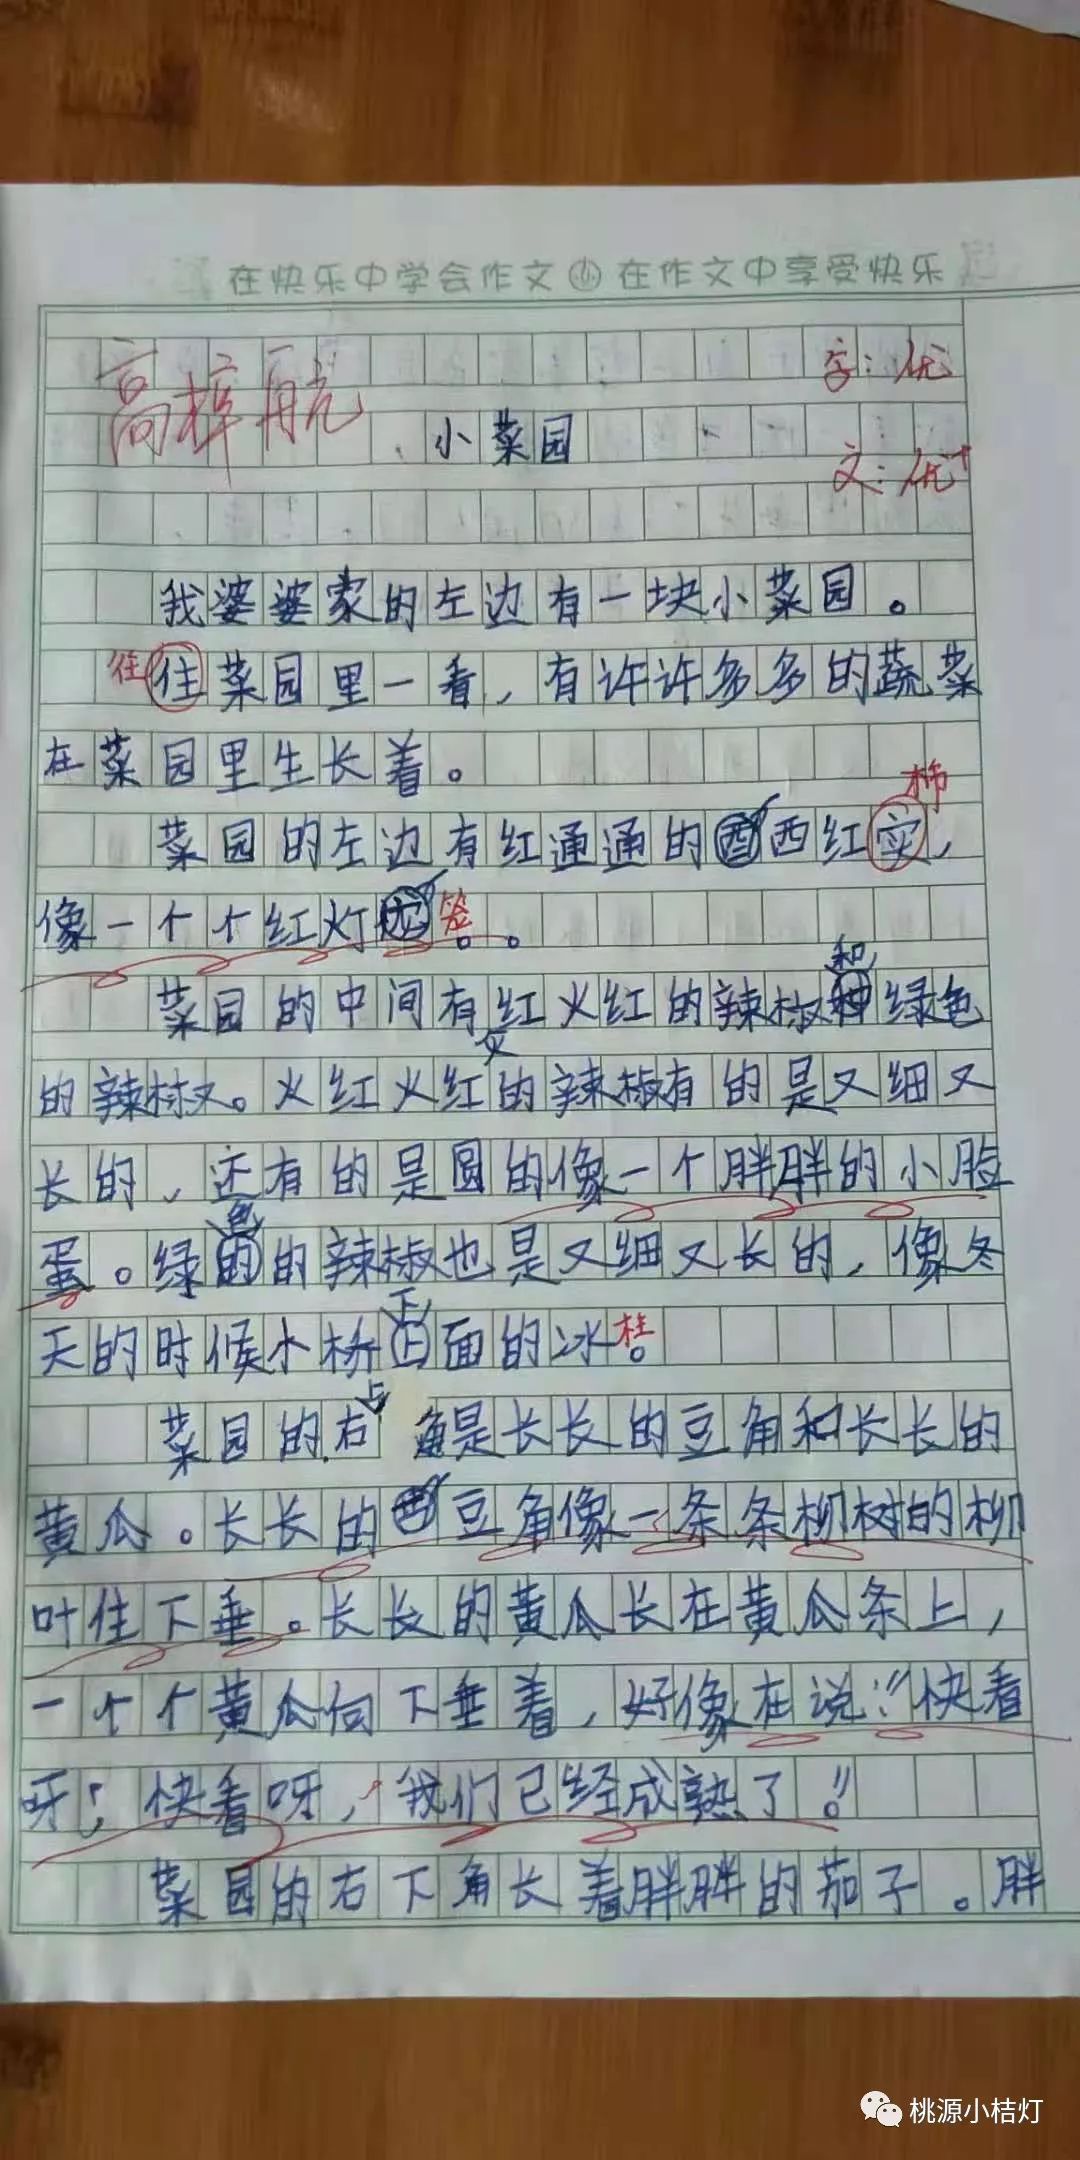 在快乐中学会作文 在作文中享受快乐
高梓航
字：优
小菜园
文：优+
我婆婆家的左边有一块小菜园。
往
住菜园里一看，有许许多多的蔬菜
在菜园里生长着。
柿
菜园的左边有红通通的西红实，
像一个个红灯笼。
和
菜园的中间有红火红的辣椒绿色
的辣椒。火红火红的辣椒有的是又细又
长的，还有的是圆的像一个胖胖的小脸
色
蛋。绿的辣椒也是又细又长的，像冬
下
天的时候小桥面的冰柱。
上
菜园的右角是长长的豆角和长长的
黄瓜。长长的豆角像一条条柳树的柳
叶住下垂。长长的黄瓜长在黄瓜条上，
一个个黄瓜向下垂着，好像在说：“快看
呀！快看呀，我们已经成熟了！”
菜园的右下角长着胖胖的茄子。胖
桃源小桔灯